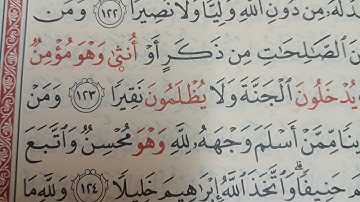 مِن دُونِ ٱللَّهِ وَلِيًّا وَلَا نَصِيرًا ١٢٢ وَمَن
ٱلصَّـٰلِحَـٰتِ مِن ذَكَرٍ أَوْ أُنثَىٰ وَهُوَ مُؤْمِنٌ
يُدْخَلُونَ ٱلْجَنَّةَ وَلَا يُظْلَمُونَ نَقِيرًا ١٢٣ وَمَنْ
مِّمَّنْ أَسْلَمَ وَجْهَهُۥ لِلَّهِ وَهْوَ مُحْسِنٌ وَٱتَّبَعَ
حَنِيفًا وَٱتَّخَذَ ٱللَّهُ إِبْرَٰهِيمَ خَلِيلًا ١٢٤ وَلِلَّهِ مَا